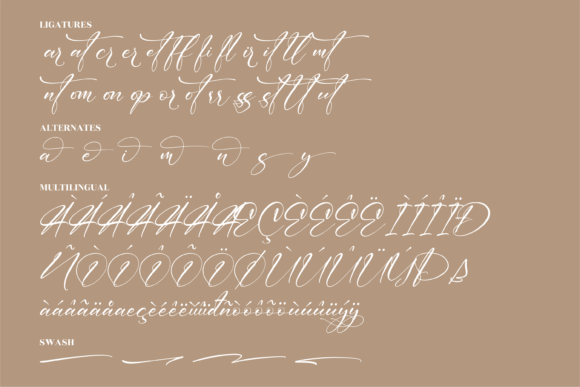 LIGATURES
ar at cr er et ff fi fl ir it tl mt
nt om on op or ot rr ss st tt ut
ALTERNATES
a e i m n s y
MULTILINGUAL
ÀÁÂÃÄÅÆÇÈÉÊËÌÍÎÏÐ
ÑÒÓÔÕÖØÙÚÛÜÝÞß
àáâãäåæçèéêëìíîïðñòóôõöùúûüýÿ
SWASH